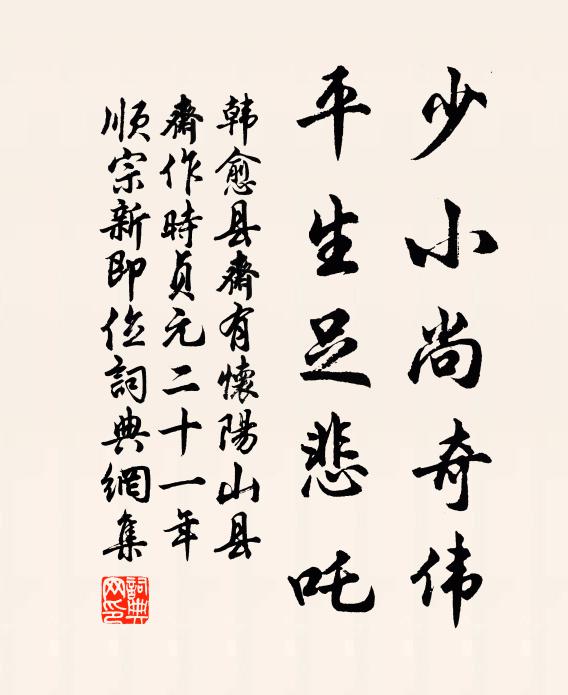 少小尚奇伟
平生足悲吒
韩愈县齋有懷陽山县
齋作時貞元二十一年
順宗新即位詞典網集
詞典
网印